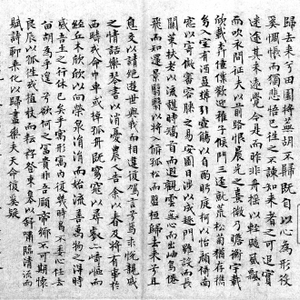 歸去來兮田園將蕪胡不歸既自以心為形役
奚惆悵而獨悲悟已往之不諫知來者之可追寔
迷途其未遠覺今是而昨非舟搖搖以輕颺風飄飄
而吹衣問征夫以前路恨晨光之熹微乃瞻衡宇載
欣載奔僮僕歡迎稚子候門三逕就荒松菊猶存携
幼入室有酒盈樽引壺觴以自酌眄庭柯以怡顏倚南
窓以寄傲審容膝之易安園日涉以成趣門雖設而長
關策扶老以流憩時矯首而遐觀雲無心以出岫鳥倦
飛而知還景翳翳以將入撫孤松而盤桓歸去來兮請
息交以絕遊世與我而相遺復駕言兮焉求悅親戚
之情話樂琴書以消憂農人告余以春及將有事於
西疇或命巾車或棹孤舟既窈窕以尋壑亦崎嶇而
經丘木欣欣以向榮泉涓涓而始流善萬物之得時
感吾生之行休已矣乎寓形宇內復幾時曷不委心任去
留胡為乎遑遑欲何之富貴非吾願帝鄉不可期懷
良辰以孤往或植杖而耘耔登東皋以舒嘯臨清流而
賦詩聊乘化以歸盡樂夫天命復奚疑